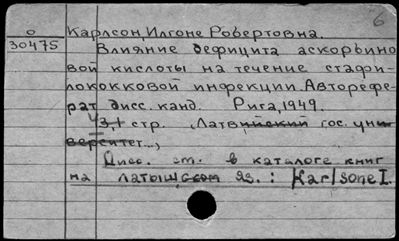 6
о Карлсон, Илгоне Робертовна.
30475 Влияние дефицита аскорбино
вой кислоты на течение стафи-
лококковой инфекции. Авторефе-
рат дисс. канд. Рига, 1949.
стр. (Латвийский гос. уни
верситет..,
Дисс. см. в каталоге книг
на латышском яз.: Karlsone I.